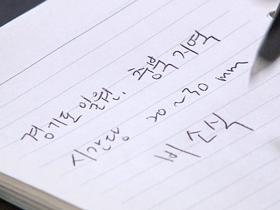 경기도 일원, 충북 지역
시간당 20~30 mm
비 소식